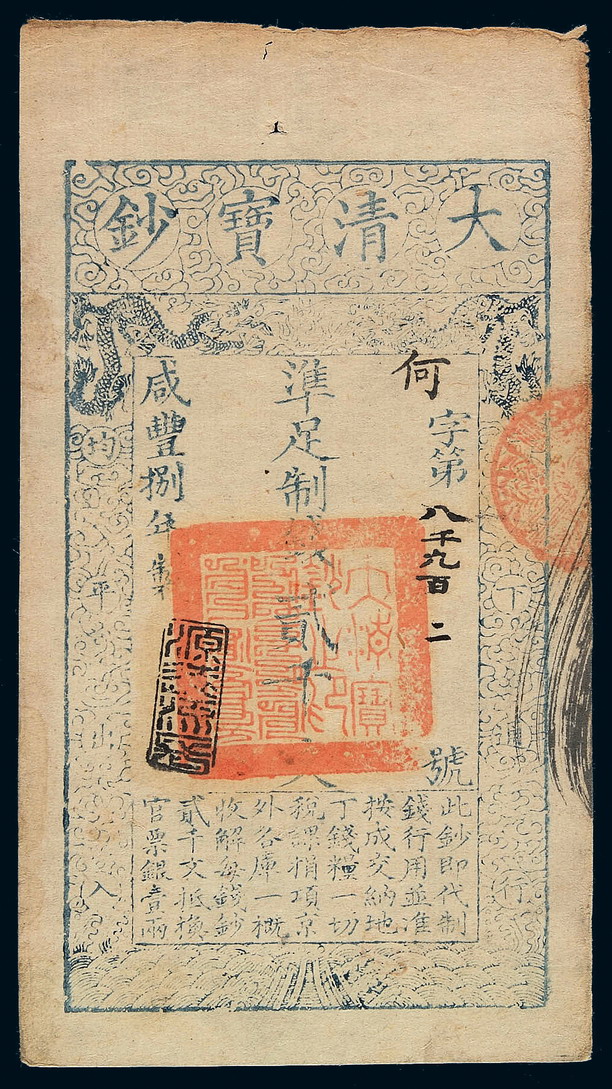 大清寶鈔
何字第八千九百二號
準足制錢貳千文
咸豐捌年製
天下通行
均平出入
此鈔即代制
錢行用並準
按成交納地
丁錢糧一切
稅課捐項京
外各庫一概
收解每錢鈔
貳千文抵換
官票銀壹兩
大清寶鈔之印